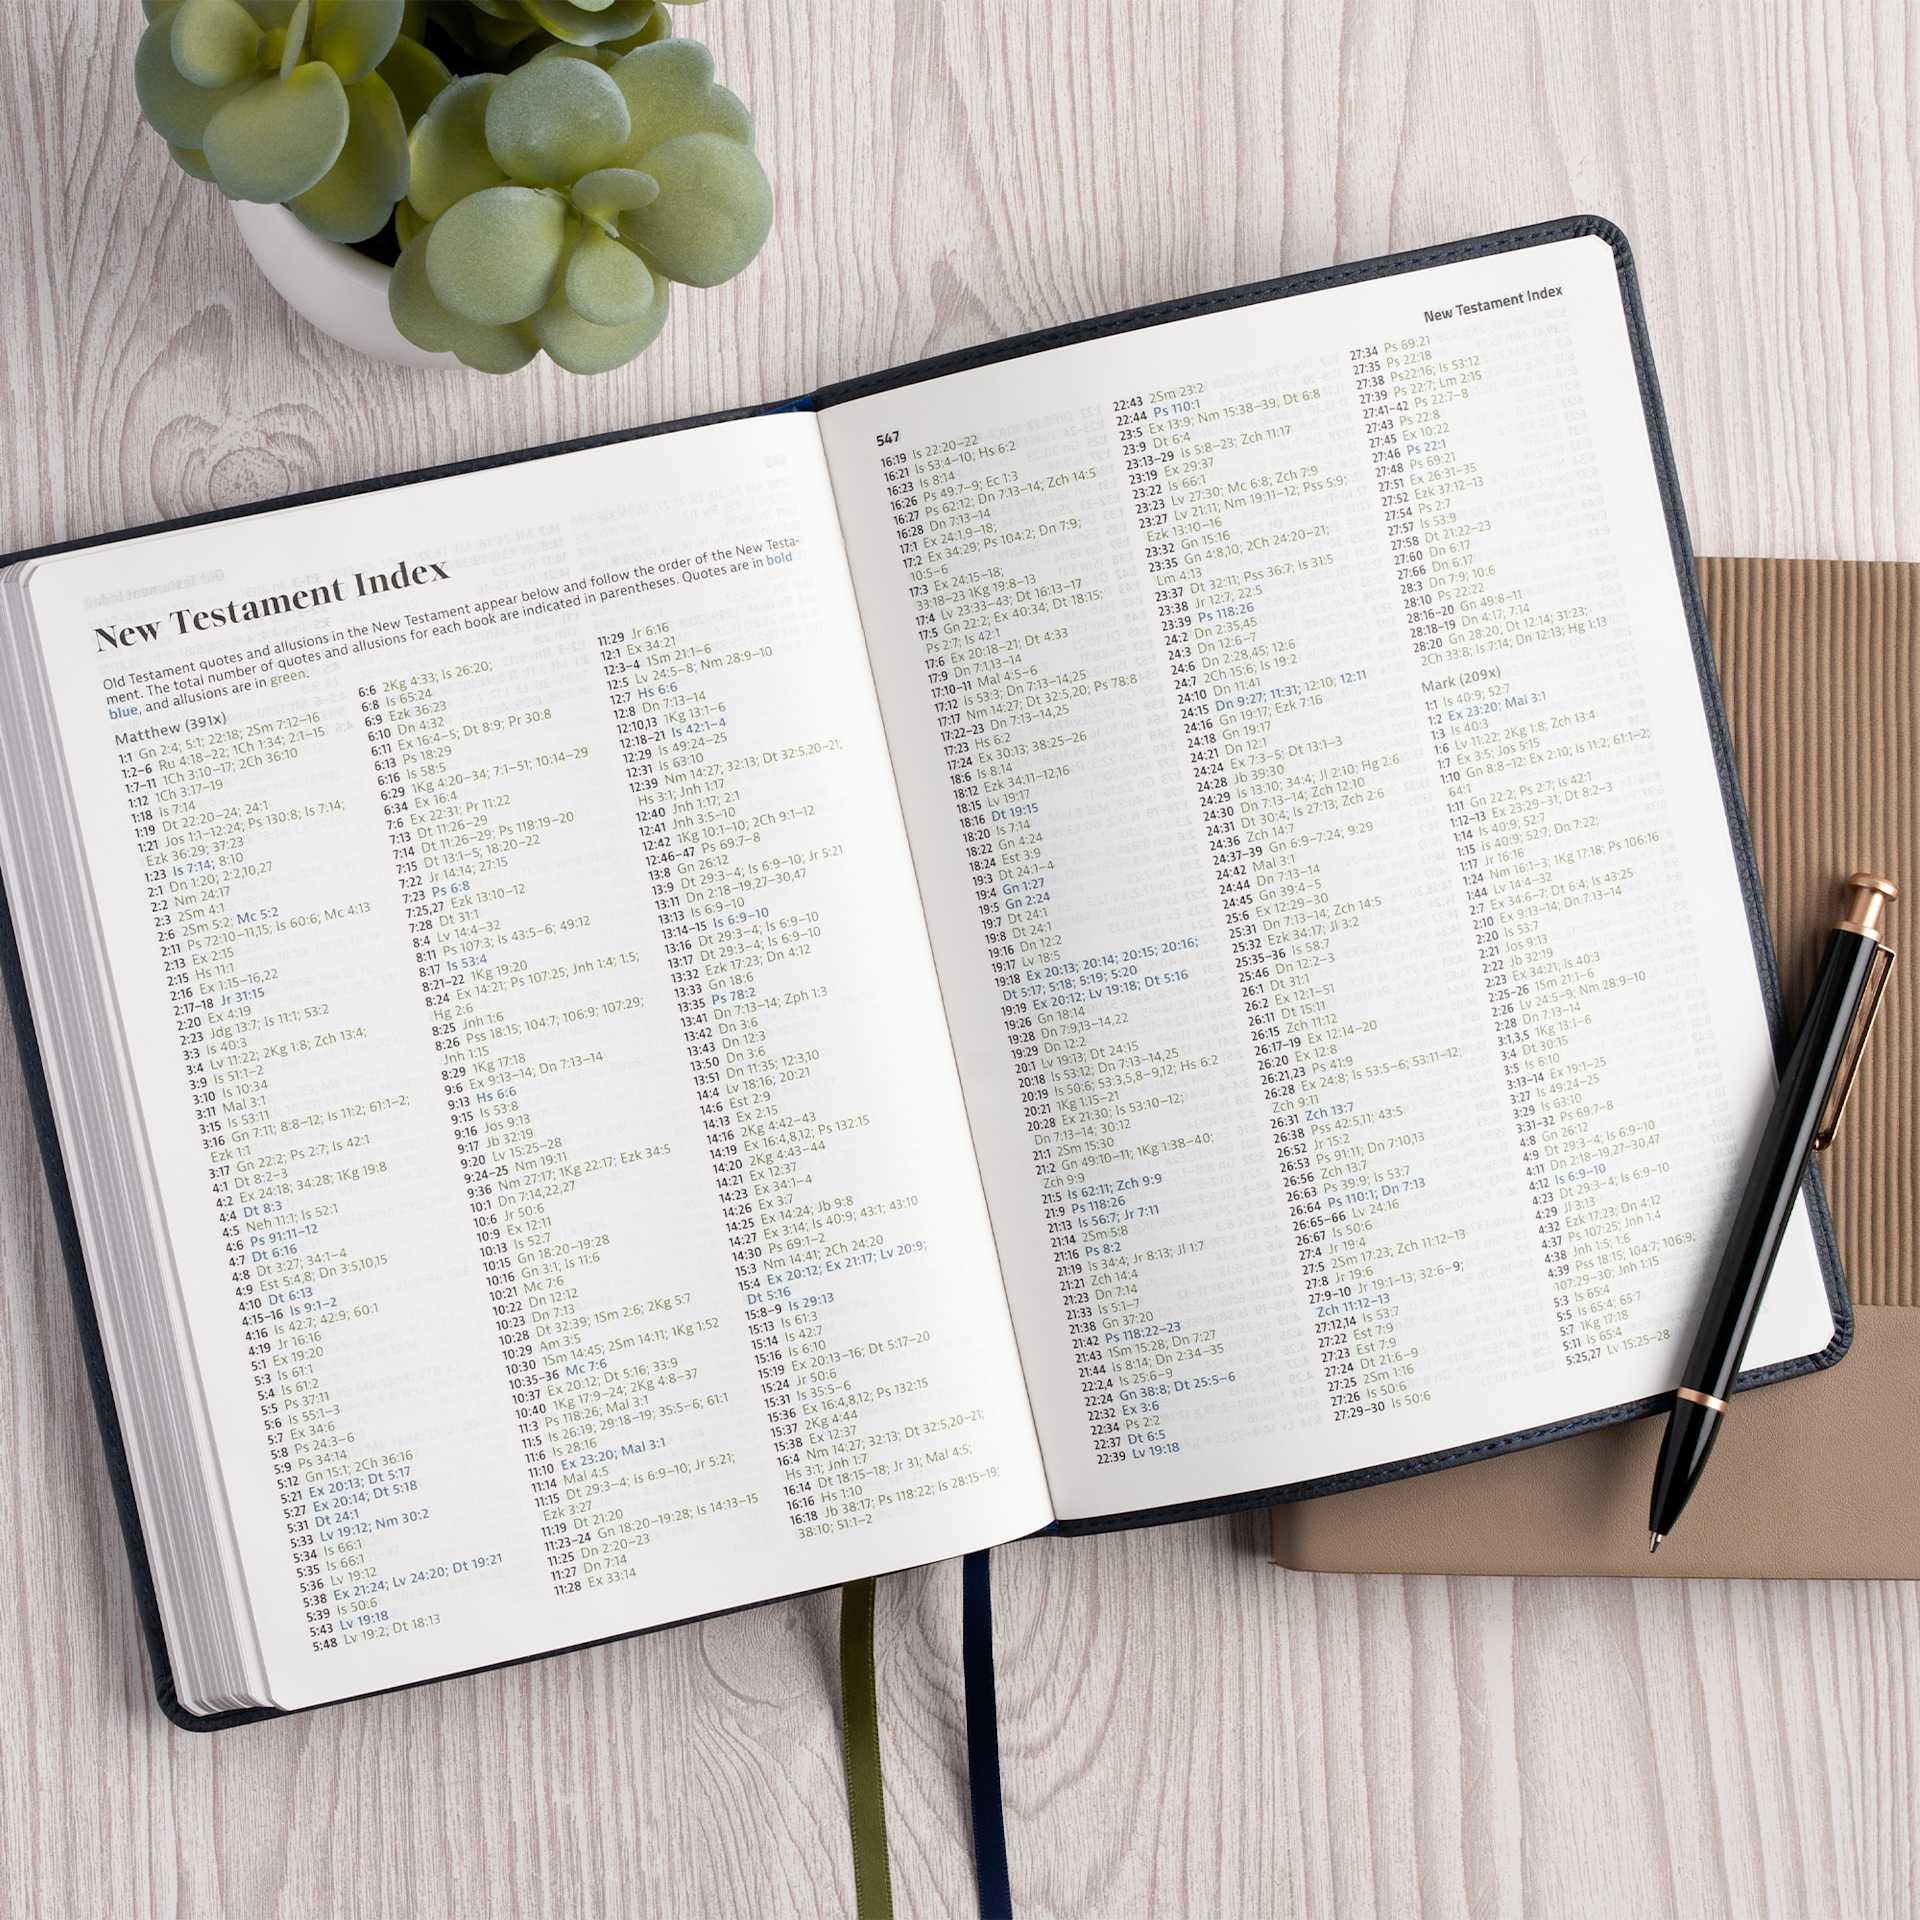 New Testament Index
Old Testament quotes and allusions in the New Testament appear below and follow the order of the New Testa-
ment. The total number of quotes and allusions for each book are indicated in parentheses. Quotes are in bold
blue, and allusions are in green.
Matthew (391x)
1:1 Gn 2:4; 5:1; 22:18; 2Sm 7:12–16
1:2–6 Ru 4:18–22; 1Ch 1:34; 2:1–15
1:7–11 1Ch 3:10–17; 2Ch 36:10
1:12 1Ch 3:17–19
1:18 Is 7:14
1:19 Dt 22:20–24; 24:1
1:21 Jos 1:1–12:24; Ps 130:8; Is 7:14;
Ezk 36:29; 37:23
1:23 Is 7:14; 8:10
2:1 Dn 1:20; 2:2,10,27
2:2 Nm 24:17
2:3 2Sm 4:1
2:6 2Sm 5:2; Mc 5:2
2:11 Ps 72:10–11,15; Is 60:6; Mc 4:13
2:13 Ex 2:15
2:15 Hs 11:1
2:16 Ex 1:15–16,22
2:17–18 Jr 31:15
2:20 Ex 4:19
2:23 Jdg 13:7; Is 11:1; 53:2
3:3 Is 40:3
3:4 Lv 11:22; 2Kg 1:8; Zch 13:4;
3:9 Is 51:1–2
3:10 Is 10:34
3:11 Mal 3:1
3:15 Is 53:11
3:16 Gn 7:11; 8:8–12; Is 11:2; 61:1–2;
Ezk 1:1
3:17 Gn 22:2; Ps 2:7; Is 42:1
4:1 Dt 8:2–3
4:2 Ex 24:18; 34:28; 1Kg 19:8
4:4 Dt 8:3
4:5 Neh 11:1; Is 52:1
4:6 Ps 91:11–12
4:7 Dt 6:16
4:8 Dt 3:27; 34:1–4
4:9 Est 5:4,8; Dn 3:5,10,15
4:10 Dt 6:13
4:15–16 Is 9:1–2
4:16 Is 42:7; 42:9; 60:1
4:19 Jr 16:16
5:1 Ex 19:20
5:3 Is 61:1
5:4 Is 61:2
5:5 Ps 37:11
5:6 Is 55:1–3
5:7 Ex 34:6
5:8 Ps 24:3–6
5:9 Ps 34:14
5:12 Gn 15:1; 2Ch 36:16
5:21 Ex 20:13; Dt 5:17
5:27 Ex 20:14; Dt 5:18
5:31 Dt 24:1
5:33 Lv 19:12; Nm 30:2
5:34 Is 66:1
5:35 Is 66:1
5:36 Lv 19:12
5:38 Ex 21:24; Lv 24:20; Dt 19:21
5:39 Is 50:6
5:43 Lv 19:18
5:48 Lv 19:2; Dt 18:13
6:6 2Kg 4:33; Is 26:20;
6:8 Is 65:24
6:9 Ezk 36:23
6:10 Dn 4:32
6:11 Ex 16:4–5; Dt 8:9; Pr 30:8
6:13 Ps 18:29
6:16 Is 58:5
6:29 1Kg 4:20–34; 7:1–51; 10:14–29
6:34 Ex 16:4
7:6 Ex 22:31; Pr 11:22
7:13 Dt 11:26–29
7:14 Dt 11:26–29; Ps 118:19–20
7:15 Dt 13:1–5; 18:20–22
7:22 Jr 14:14; 27:15
7:23 Ps 6:8
7:25,27 Ezk 13:10–12
7:28 Dt 31:1
8:4 Lv 14:4–32
8:11 Ps 107:3; Is 43:5–6; 49:12
8:17 Is 53:4
8:21–22 1Kg 19:20
8:24 Ex 14:21; Ps 107:25, Jnh 1:4; 1:5;
Hg 2:6
8:25 Jnh 1:6
8:26 Pss 18:15; 104:7; 106:9; 107:29;
Jnh 1:15
8:29 1Kg 17:18
9:6 Ex 9:13–14; Dn 7:13–14
9:13 Hs 6:6
9:15 Is 53:8
9:16 Jos 9:13
9:17 Jb 32:19
9:20 Lv 15:25–28
9:24–25 Nm 19:11
9:36 Nm 27:17; 1Kg 22:17; Ezk 34:5
10:1 Dn 7:14,22,27
10:6 Jr 50:6
10:9 Ex 12:11
10:13 Is 52:7
10:15 Gn 18:20–19:28
10:16 Gn 3:1; Is 11:6
10:21 Mc 7:6
10:22 Dn 12:12
10:23 Dn 7:13
10:28 Dt 32:39; 1Sm 2:6; 2Kg 5:7
10:29 Am 3:5
10:30 1Sm 14:45; 2Sm 14:11; 1Kg 1:52
10:35–36 Mc 7:6
10:37 Ex 20:12; Dt 5:16; 33:9
10:40 1Kg 17:9–24; 2Kg 4:8–37
11:3 Ps 118:26; Mal 3:1
11:5 Is 26:19; 29:18–19; 35:5–6; 61:1
11:6 Is 28:16
11:10 Ex 23:20; Mal 3:1
11:14 Mal 4:5
11:15 Dt 29:3–4; Is 6:9–10; Jr 5:21;
Ezk 3:27
11:19 Dt 21:20
11:23–24 Gn 18:20–19:28; Is 14:13–15
11:25 Dn 2:20–23
11:27 Dn 7:14
11:28 Ex 33:14
11:29 Jr 6:16
12:1 Ex 34:21
12:3–4 1Sm 21:1–6
12:5 Lv 24:5–8; Nm 28:9–10
12:7 Hs 6:6
12:8 Dn 7:13–14
12:10,13 1Kg 13:1–6
12:18–21 Is 42:1–4
12:29 Is 49:24–25
12:31 Is 63:10
12:39 Nm 14:27; 32:13; Dt 32:5,20–21;
Hs 3:1; Jnh 1:17
12:40 Jnh 1:17; 2:1
12:41 Jnh 3:5–10
12:42 1Kg 10:1–10; 2Ch 9:1–12
12:46–47 Ps 69:7–8
13:8 Gn 26:12
13:9 Dt 29:3–4; Is 6:9–10; Jr 5:21
13:11 Dn 2:18–19,27–30,47
13:13 Is 6:9–10
13:14–15 Is 6:9–10
13:16 Dt 29:3–4; Is 6:9–10
13:17 Dt 29:3–4; Is 6:9–10
13:32 Ezk 17:23; Dn 4:12
13:33 Gn 18:6
13:35 Ps 78:2
13:41 Dn 7:13–14; Zph 1:3
13:42 Dn 3:6
13:43 Dn 12:3
13:50 Dn 3:6
13:51 Dn 11:35; 12:3,10
14:4 Lv 18:16; 20:21
14:6 Est 2:9
14:13 Ex 2:15
14:16 2Kg 4:42–43
14:19 Ex 16:4,8,12; Ps 132:15
14:20 2Kg 4:43–44
14:21 Ex 12:37
14:23 Ex 34:1–4
14:26 Ex 3:7
14:25 Ex 14:24; Jb 9:8
14:27 Ex 3:14; Is 40:9; 43:1; 43:10
14:30 Ps 69:1–2
15:3 Nm 14:41; 2Ch 24:20
15:4 Ex 20:12; Ex 21:17; Lv 20:9;
Dt 5:16
15:8–9 Is 29:13
15:13 Is 61:3
15:14 Is 42:7
15:16 Is 6:10
15:19 Ex 20:13–16; Dt 5:17–20
15:24 Jr 50:6
15:31 Is 35:5–6
15:36 Ex 16:4,8,12; Ps 132:15
15:37 2Kg 4:44
15:38 Ex 12:37
16:4 Nm 14:27; 32:13; Dt 32:5,20–21;
Hs 3:1; Jnh 1:7
16:14 Dt 18:15–18; Jr 31; Mal 4:5;
16:16 Hs 1:10
16:18 Jb 38:17; Ps 118:22; Is 28:15–19;
38:10; 51:1–2
547
New Testament Index
16:19 Is 22:20–22
16:21 Is 53:4–10; Hs 6:2
16:23 Is 8:14
16:26 Ps 49:7–9; Ec 1:3
16:27 Ps 62:12; Dn 7:13–14; Zch 14:5
16:28 Dn 7:13–14
17:1 Ex 24:1,9–18;
17:2 Ex 34:29; Ps 104:2; Dn 7:9;
10:5–6
17:3 Ex 24:15–18;
33:18–23 1Kg 19:8–13
17:4 Lv 23:33–43; Dt 16:13–17
17:5 Gn 22:2; Ex 40:34; Dt 18:15;
Ps 2:7; Is 42:1
17:6 Ex 20:18–21; Dt 4:33
17:9 Dn 7:1,13–14
17:10–11 Mal 4:5–6
17:12 Is 53:3; Dn 7:13–14,25
17:17 Nm 14:27; Dt 32:5,20; Ps 78:8
17:22–23 Dn 7:13–14,25
17:23 Hs 6:2
17:24 Ex 30:13; 38:25–26
18:6 Is 8:14
18:12 Ezk 34:11–12,16
18:15 Lv 19:17
18:16 Dt 19:15
18:20 Is 7:14
18:22 Gn 4:24
18:24 Est 3:9
19:3 Dt 24:1–4
19:4 Gn 1:27
19:5 Gn 2:24
19:7 Dt 24:1
19:8 Dt 24:1
19:16 Dn 12:2
19:17 Lv 18:5
19:18 Ex 20:13; 20:14; 20:15; 20:16;
Dt 5:17; 5:18; 5:19; 5:20
19:19 Ex 20:12; Lv 19:18; Dt 5:16
19:26 Gn 18:14
19:28 Dn 7:9,13–14,22
19:29 Dn 12:2
20:1 Lv 19:13; Dt 24:15
20:18 Is 53:12; Dn 7:13–14,25
20:19 Is 50:6; 53:3,5,8–9,12; Hs 6:2
20:21 1Kg 1:15–21
20:28 Ex 21:30; Is 53:10–12;
Dn 7:13–14; 30:12
21:1 2Sm 15:30
21:2 Gn 49:10–11; 1Kg 1:38–40;
Zch 9:9
21:5 Is 62:11; Zch 9:9
21:9 Ps 118:26
21:13 Is 56:7; Jr 7:11
21:14 2Sm 5:8
21:16 Ps 8:2
21:19 Is 34:4; Jr 8:13; Jl 1:7
21:21 Zch 14:4
21:23 Dn 7:14
21:33 Is 5:1–7
21:38 Gn 37:20
21:42 Ps 118:22–23
21:43 1Sm 15:28; Dn 7:27
21:44 Is 8:14; Dn 2:34–35
22:2,4 Is 25:6–9
22:24 Gn 38:8; Dt 25:5–6
22:32 Ex 3:6
22:34 Ps 2:2
22:37 Dt 6:5
22:39 Lv 19:18
22:43 2Sm 23:2
22:44 Ps 110:1
23:5 Ex 13:9; Nm 15:38–39; Dt 6:8
23:9 Dt 6:4
23:13–29 Is 5:8–23; Zch 11:17
23:19 Ex 29:37
23:22 Is 66:1
23:23 Lv 27:30; Mc 6:8; Zch 7:9
23:27 Lv 21:11; Nm 19:11–12; Pss 5:9;
Ezk 13:10–16
23:32 Gn 15:16
23:35 Gn 4:8,10; 2Ch 24:20–21;
Lm 4:13
23:37 Dt 32:11; Pss 36:7; Is 31:5
23:38 Jr 12:7; 22:5
23:39 Ps 118:26
24:2 Dn 2:35,45
24:3 Dn 12:6–7
24:6 Dn 2:28,45; 12:6
24:7 2Ch 15:6; Is 19:2
24:10 Dn 11:41
24:15 Dn 9:27; 11:31; 12:10; 12:11
24:16 Gn 19:17; Ezk 7:16
24:18 Gn 19:17
24:21 Dn 12:1
24:24 Ex 7:3–5; Dt 13:1–3
24:28 Jb 39:30
24:29 Is 13:10; 34:4; Jl 2:10; Hg 2:6
24:30 Dn 7:13–14; Zch 12:10
24:31 Dt 30:4; Is 27:13; Zch 2:6
24:36 Zch 14:7
24:37–39 Gn 6:9–7:24; 9:29
24:42 Mal 3:1
24:44 Dn 7:13–14
24:45 Gn 39:4–5
25:6 Ex 12:29–30
25:31 Dn 7:13–14; Zch 14:5
25:32 Ezk 34:17; Jl 3:2
25:35–36 Is 58:7
25:46 Dn 12:2–3
26:1 Dt 31:1
26:2 Ex 12:1–51
26:11 Dt 15:11
26:15 Zch 11:12
26:17–19 Ex 12:14–20
26:20 Ex 12:8
26:21,23 Ps 41:9
26:28 Ex 24:8; Is 53:5–6; 53:11–12;
Zch 9:11
26:31 Zch 13:7
26:38 Pss 42:5,11; 43:5
26:52 Jr 15:2
26:53 Ps 91:11; Dn 7:10,13
26:56 Zch 13:7
26:63 Ps 39:9; Is 53:7
26:64 Ps 110:1; Dn 7:13
26:65–66 Lv 24:16
26:67 Is 50:6
27:4 Jr 19:4
27:5 2Sm 17:23; Zch 11:12–13
27:8 Jr 19:6
27:9–10 Jr 19:1–13; 32:6–9;
Zch 11:12–13
27:12,14 Is 53:7
27:22 Est 7:9
27:23 Est 7:9
27:24 Dt 21:6–9
27:25 2Sm 1:16
27:26 Is 50:6
27:29–30 Is 50:6
27:34 Ps 69:21
27:35 Ps 22:18
27:38 Ps22:16; Is 53:12
27:39 Ps 22:7; Lm 2:15
27:41–42 Ps 22:7–8
27:43 Ps 22:8
27:45 Ex 10:22
27:46 Ps 22:1
27:48 Ps 69:21
27:51 Ex 26:31–35
27:52 Ezk 37:12–13
27:54 Ps 2:7
27:57 Is 53:9
27:58 Dt 21:22–23
27:60 Dn 6:17
27:66 Dn 6:17
28:3 Dn 7:9; 10:6
28:10 Ps 22:22
28:16–20 Gn 49:8–11
28:18–19 Dn 4:17; 7:14
28:20 Gn 28:20; Dt 12:14; 31:23;
2Ch 33:8; Is 7:14; Dn 12:13; Hg 1:13
Mark (209x)
1:1 Is 40:9; 52:7
1:2 Ex 23:20; Mal 3:1
1:3 Is 40:3
1:6 Lv 11:22; 2Kg 1:8; Zch 13:4
1:7 Ex 3:5; Jos 5:15
1:10 Gn 8:8–12; Ex 2:10; Is 11:2; 61:1–2;
64:1
1:11 Gn 22:2; Ps 2:7; Is 42:1
1:12–13 Ex 23:29–31; Dt 8:2–3
1:14 Is 40:9; 52:7
1:15 Is 40:9; 52:7; Dn 7:22;
1:17 Jr 16:16
1:24 Nm 16:1–3; 1Kg 17:18; Ps 106:16
1:44 Lv 14:4–32
2:7 Ex 34:6–7; Dt 6:4; Is 43:25
2:10 Ex 9:13–14; Dn 7:13–14
2:20 Is 53:7
2:21 Jos 9:13
2:22 Jb 32:19
2:23 Ex 34:21; Is 40:3
2:25–26 1Sm 21:1–6
2:26 Lv 24:5–9; Nm 28:9–10
2:28 Dn 7:13–14
3:1,3,5 1Kg 13:1–6
3:4 Dt 30:15
3:5 Is 6:10
3:13–14 Ex 19:1–25
3:27 Is 49:24–25
3:29 Is 63:10
3:31–32 Ps 69:7–8
4:8 Gn 26:12
4:9 Dt 29:3–4; Is 6:9–10
4:11 Dn 2:18–19,27–30,47
4:12 Is 6:9–10
4:23 Dt 29:3–4; Is 6:9–10
4:29 Jl 3:13
4:32 Ezk 17:23; Dn 4:12
4:37 Ps 107:25; Jnh 1:4
4:38 Jnh 1:5; 1:6
4:39 Pss 18:15; 104:7; 106:9;
107:29–30; Jnh 1:15
5:3 Is 65:4
5:5 Is 65:4; 65:7
5:7 1Kg 17:18
5:11 Is 65:4
5:25,27 Lv 15:25–28